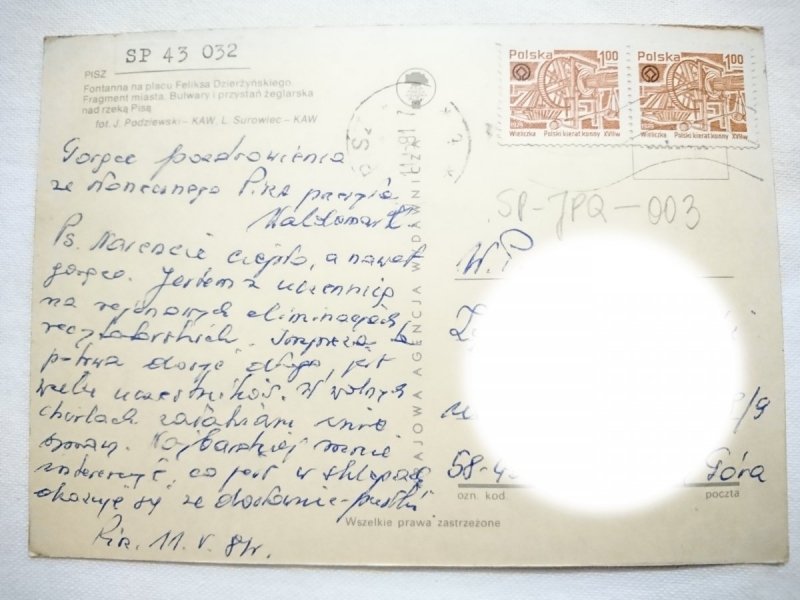 SP 43 032
PISZ
Fontanna na placu Feliksa Dzierżyńskiego
Fragment miasta. Bulwary i przystań żeglarska
nad rzeką Pisą
fot. J. Podziewski – KAW, L. Surowiec – KAW
Polska 1.00
Wieliczka Polski kierat konny XVII w
Polska 1.00
Wieliczka Polski kierat konny XVII w
SP-JPQ-003
Gorące pozdrowienia
ze słonecznego Pisza przesyła
Waldemar
Ps. Nareszcie ciepło, a nawet
gorąco. Jestem z uczennicą
na rejonowych eliminacjach
recytatorskich. Impreza
p-trwa dosyć długo, jest
wielu uczestników. W wolnych
chwilach załatwiam inne
sprawy. Najbardziej mnie
interesuje, co jest w sklepach
okazuje się że dosłownie-pustki
Pisz. 11. V. 81r.
W.P
9/9
58-4
Góra
ozn. kod.
poczta
KRAJOWA AGENCJA WYDAWNICZA
Wszelkie prawa zastrzeżone